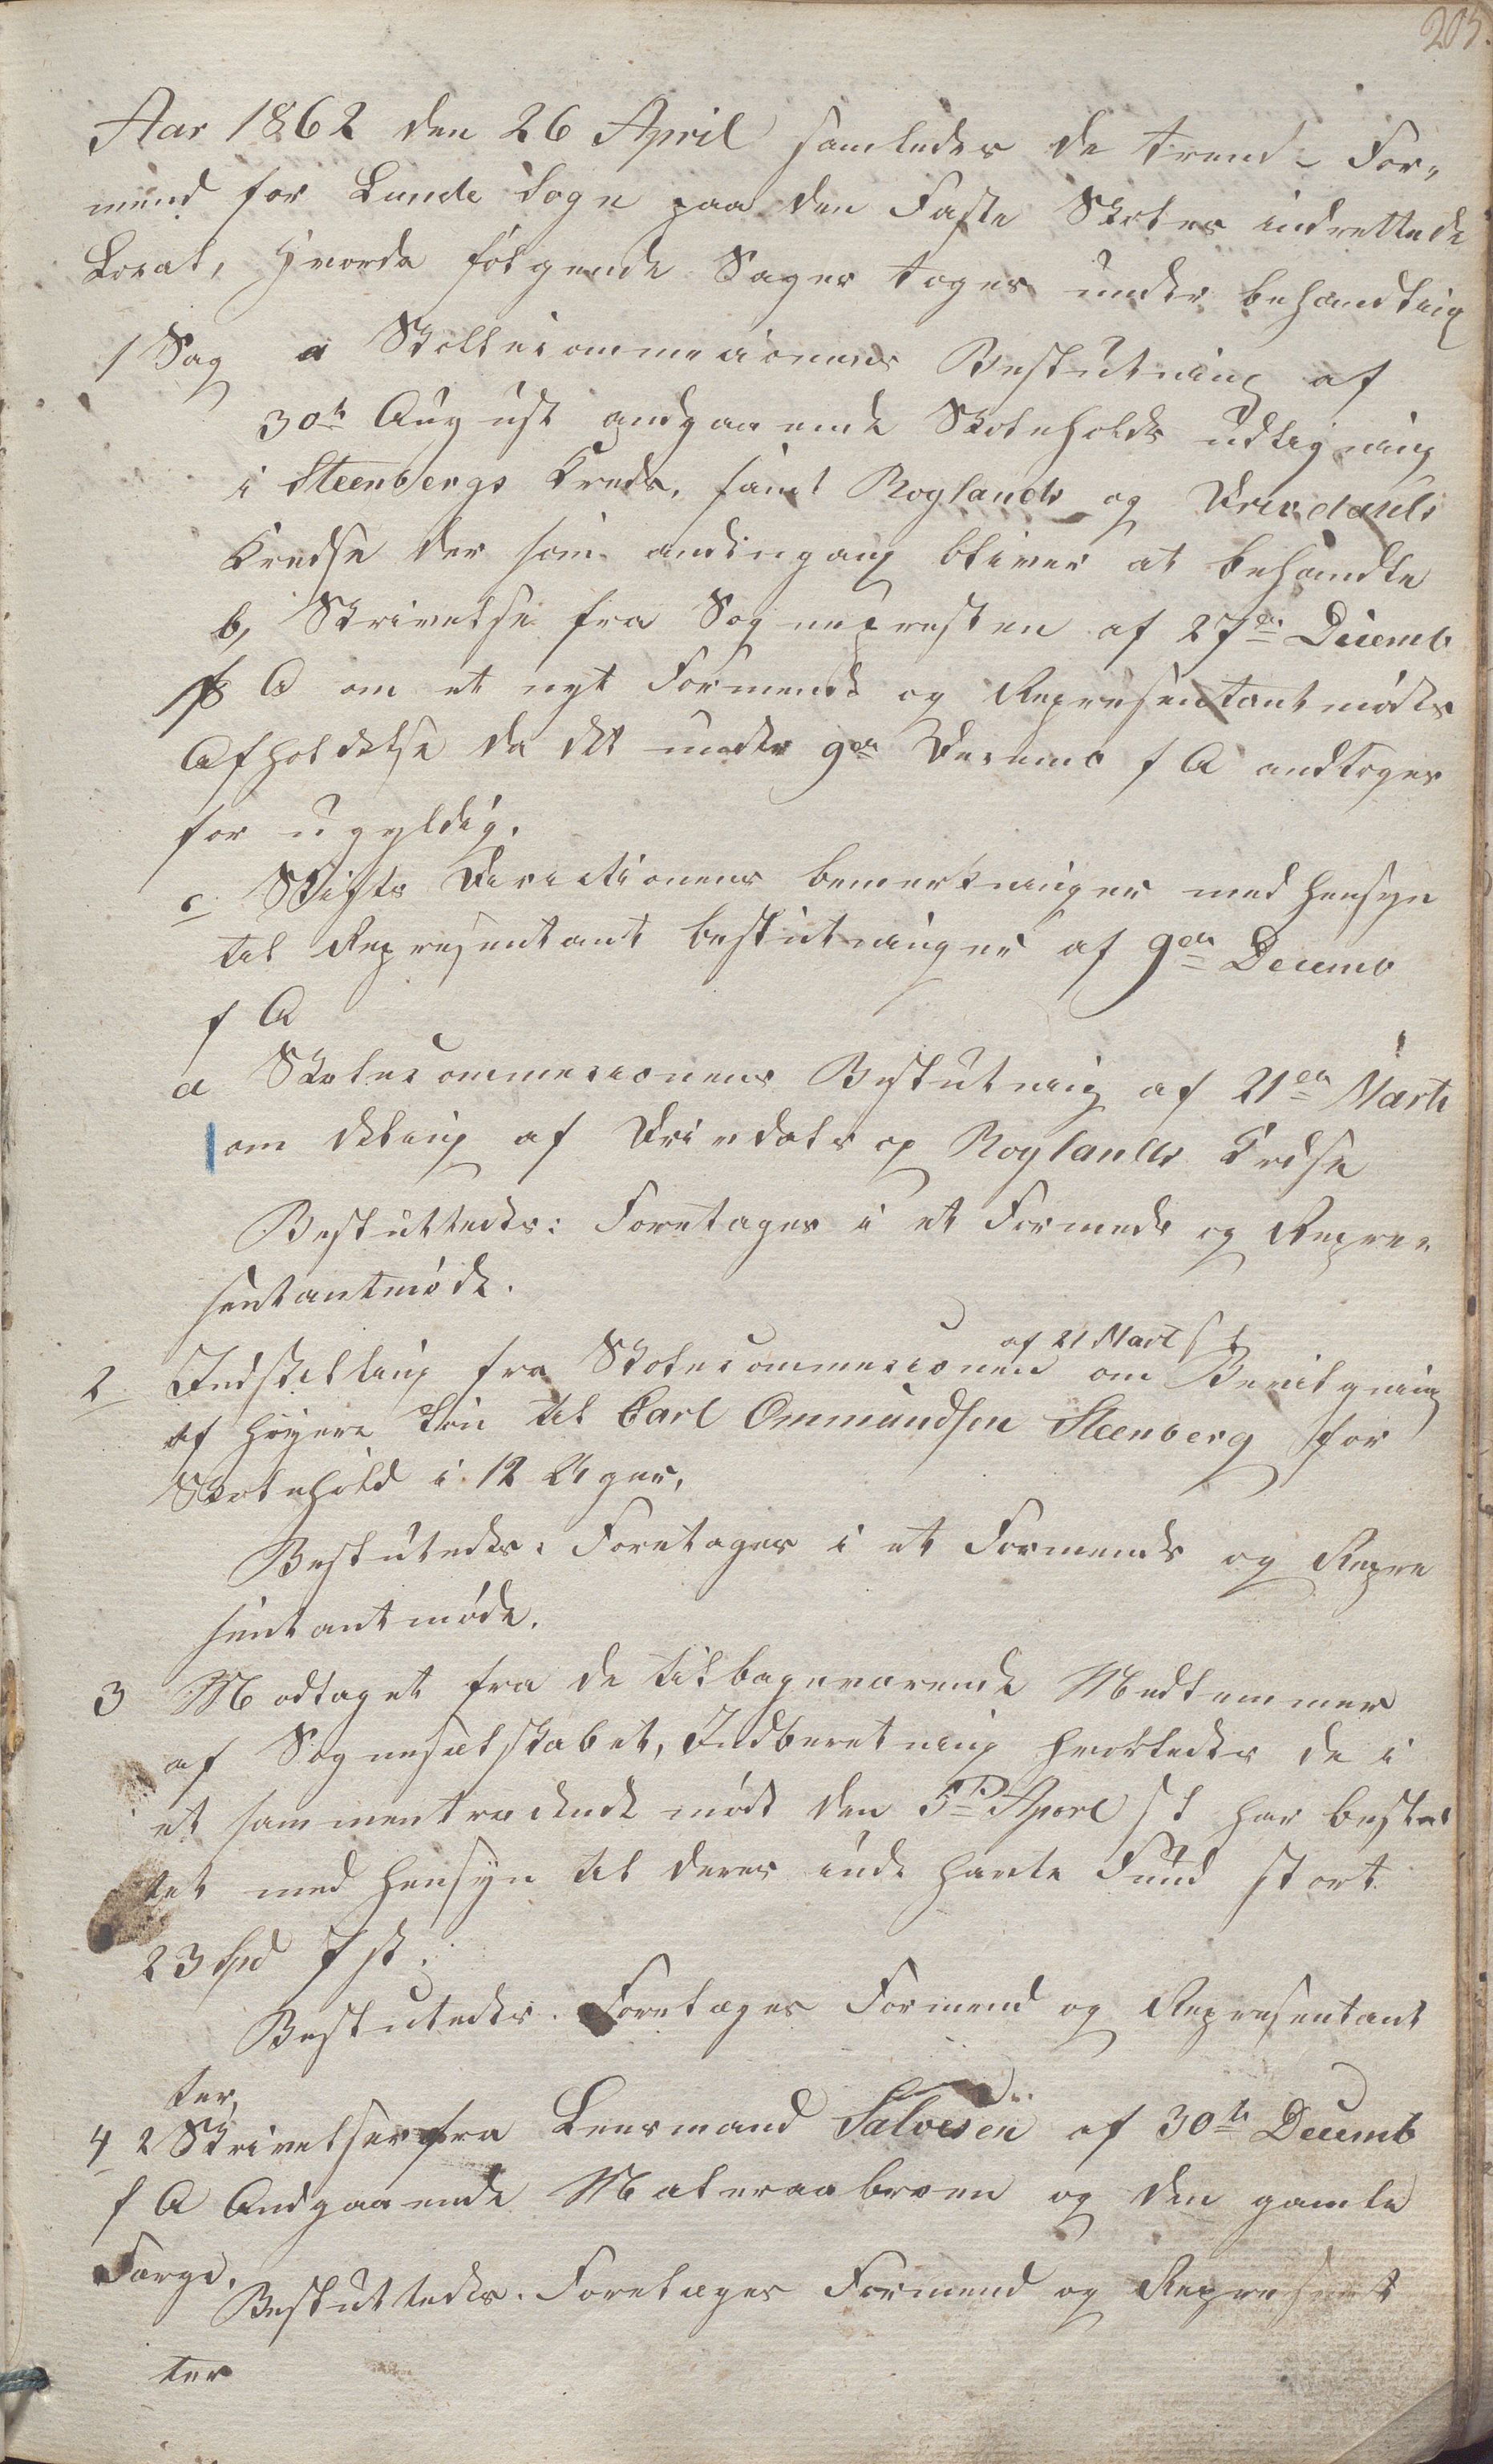 205.
Aar 1862 den 26 April samledes de trend- For-
mend for Lunde Sogn paa den Faste Skoles indrettede
Local, Hvorda følgende Sager toges under behandling
1 Sag a Skolkecommissionens Beslutning af
30te August andgaaende Skoleholds udligning
i Steenbergs Kreds, samt Roglands og Drivdauls
Kredse der som andingang bliver at behandle
b, Skrivelse fra Sognepresten af 27de Decemb
f A om et nyt Formends og Representantmødes
Afholdelse da det under 9de Decemb f A andtoges
for ugyldig.
c Stifts Directionens bemerkninger med hensyn
til Representant beslutninger af 9de Decemb
f A
d Skolecommissionens Beslutning af 21de Marts
om deling af Drivdals og Roglands Kredse
Besluttedes: Foretages i et Formends og Repre-
sentantmøde.
af 21 Mart s A
2 Indstilling fra Skolecommissionen om Bevilgning
af høyere Løn til Carl Ommundsen Steenberg for
Skolehold i 12 Uger,
Besluttedes: Foretages i et Formends og Repre
sentantmøde.
3 Modtaget fra de tilbageværende Medlemmer
af Sogneselskabet, Indberetning hvorledes de i
et sammentredende møde den 5te Aprel s A har beslut
tet med hensyn til deres inde havte Fund stort
23 Spd 7 sk.
Besluttedes. Foretages Formend og Representant
ter,
4 2 Skrivelser fra Lensmand Salvesen af 30te Decemb
f A Andgaaende Materaabroen og den gamle
Farge.
Besluttedes. Foretages Formend og Represent
ter